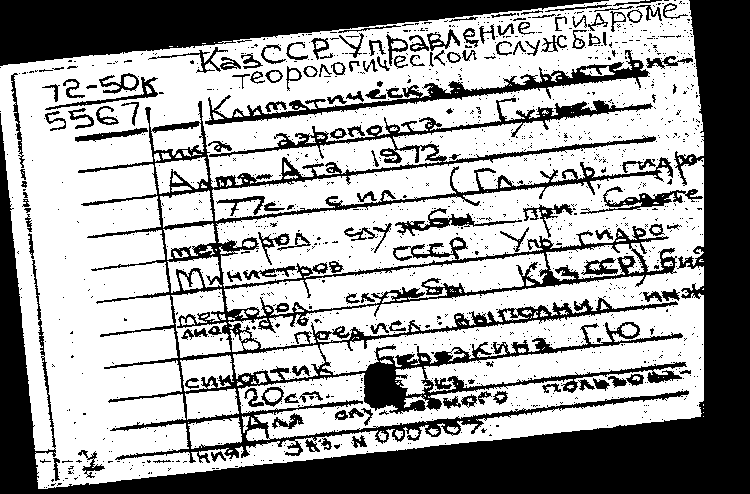 КазССР Управление гидроме
теорологической службы.
72-50к
5567
Климатическая характерис-
тика аэропорта Гурьев.
Алма-Ата, 1972.
77с. с ил. (Гл. упр. гидро-
метеорол. службы при Совете
Министров СССР. Упр. гидро-
метеорол. службы КазССР). Биб
лиогр. с. 76.
В предисл.: выполнил инж
синоптик Березкина Г.Ю.
20 см. экз.
Для служебного пользова-
ния. Экз. N 000007.